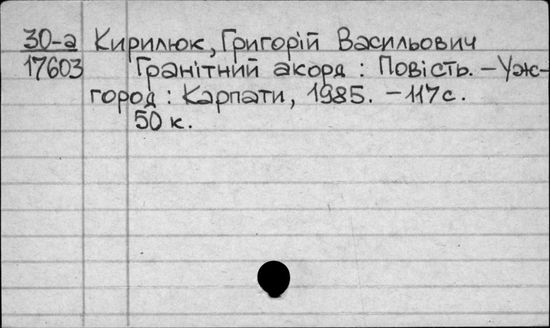 30-а Кирилюк, Григорій Васильович
17603 Гранітний акорд : Повість. – Уж-
город : Карпати, 1985. – 117 с.
50 к.